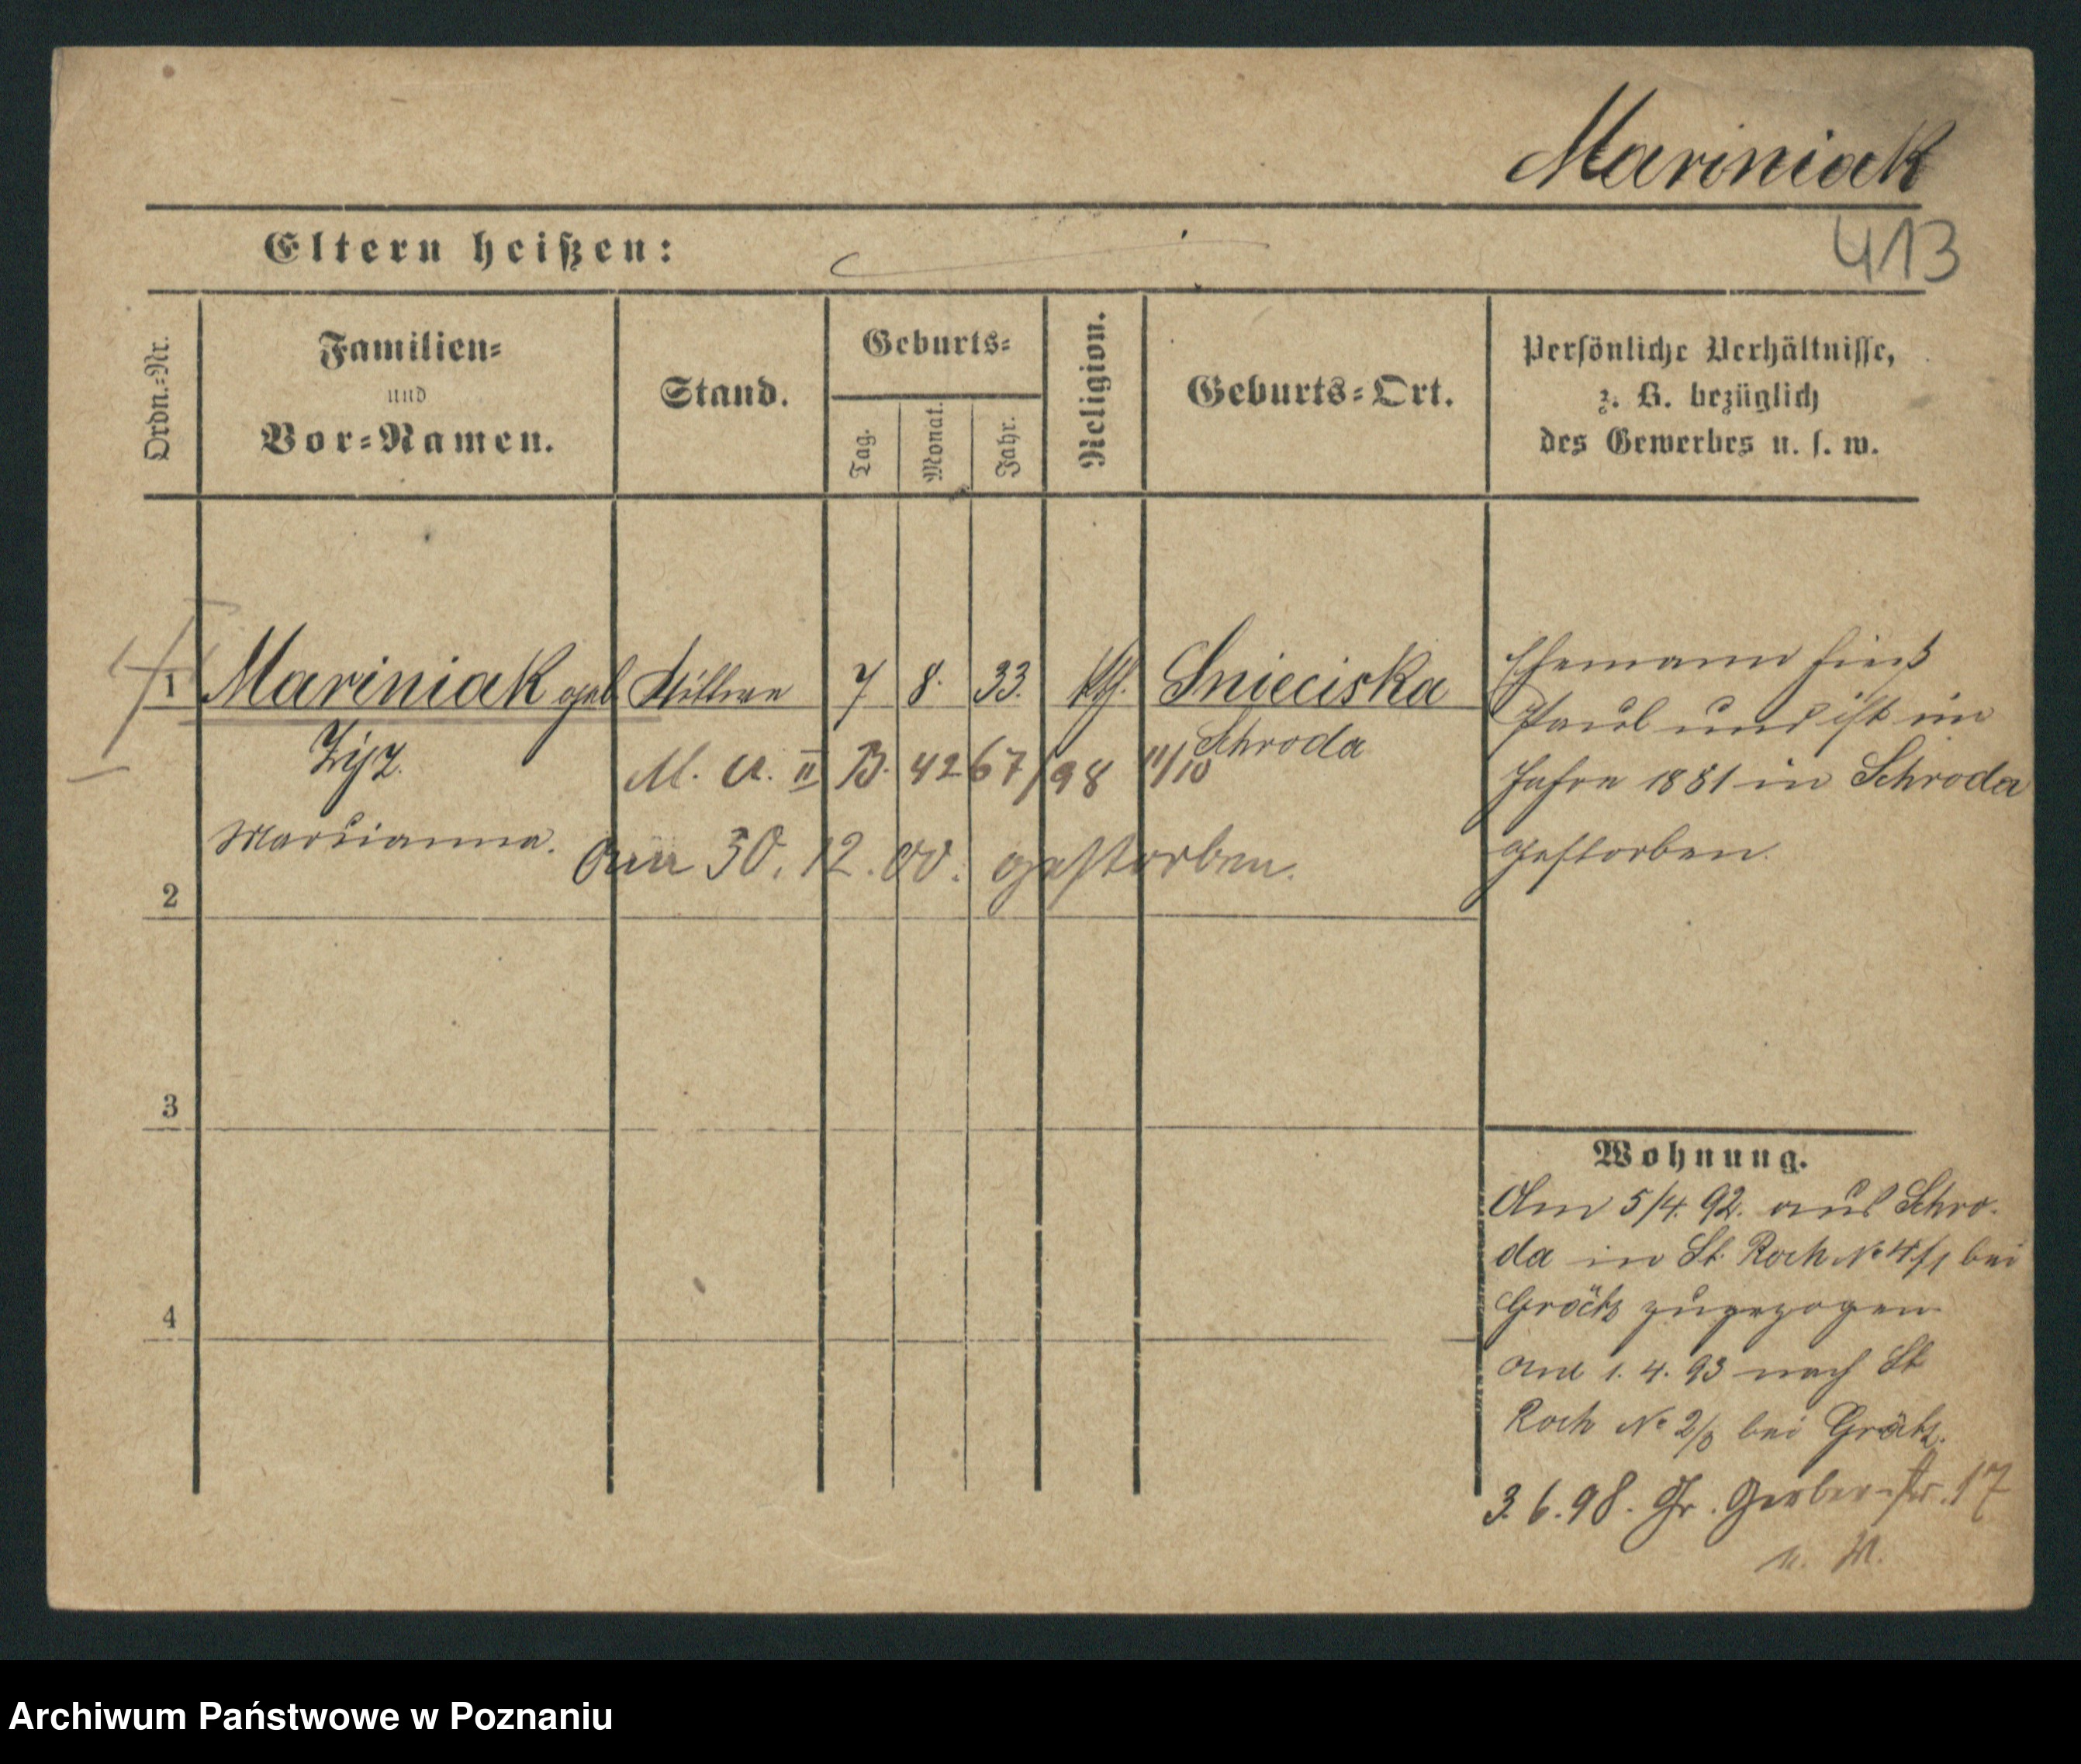 Mariniak
413
Eltern heißen:
Ordn.=Nr.
Familien=
und
Vor=Namen.
Stand.
Geburts=
Tag.
Monat.
Jahr.
Religion.
Geburts=Ort.
Persönliche Verhältnisse,
z. B. bezüglich
des Gewerbes u. s. w.
1 Mariniak geb. Wittwe 7. 8. 33. kth. Snieciska
Schroda
Zyz.
M. A. II B. 4267/98 11/10
Marianna.
am 30.12.00. gestorben.
Ehemann hieß
Paul und ist im
Jahre 1881 in Schroda
gestorben.
2
3
4
Wohnung.
Am 5/4. 92. aus Schro-
da in St. Roch No 4/1 bei
Grätz zugezogen
am 1. 4. 93 nach St
Roch No 2/ bei Grätz.
3.6.98. Gr. Gerberstr. 17
Archiwum Państwowe w Poznaniu